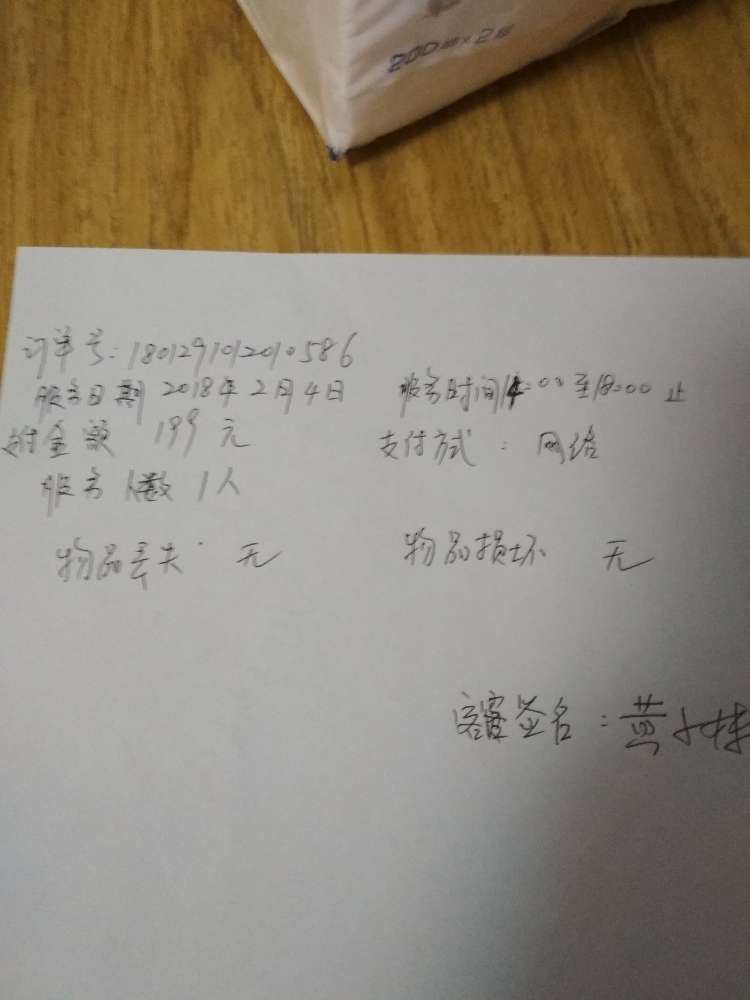 200mm×2
订单号:1801291012010586
服务日期 2018年2月4日 服务时间14:00至18:00止
支付金额 199元 支付方式:网络
服务人数 1人
物品丢失 无 物品损坏 无
客户签名:黄小